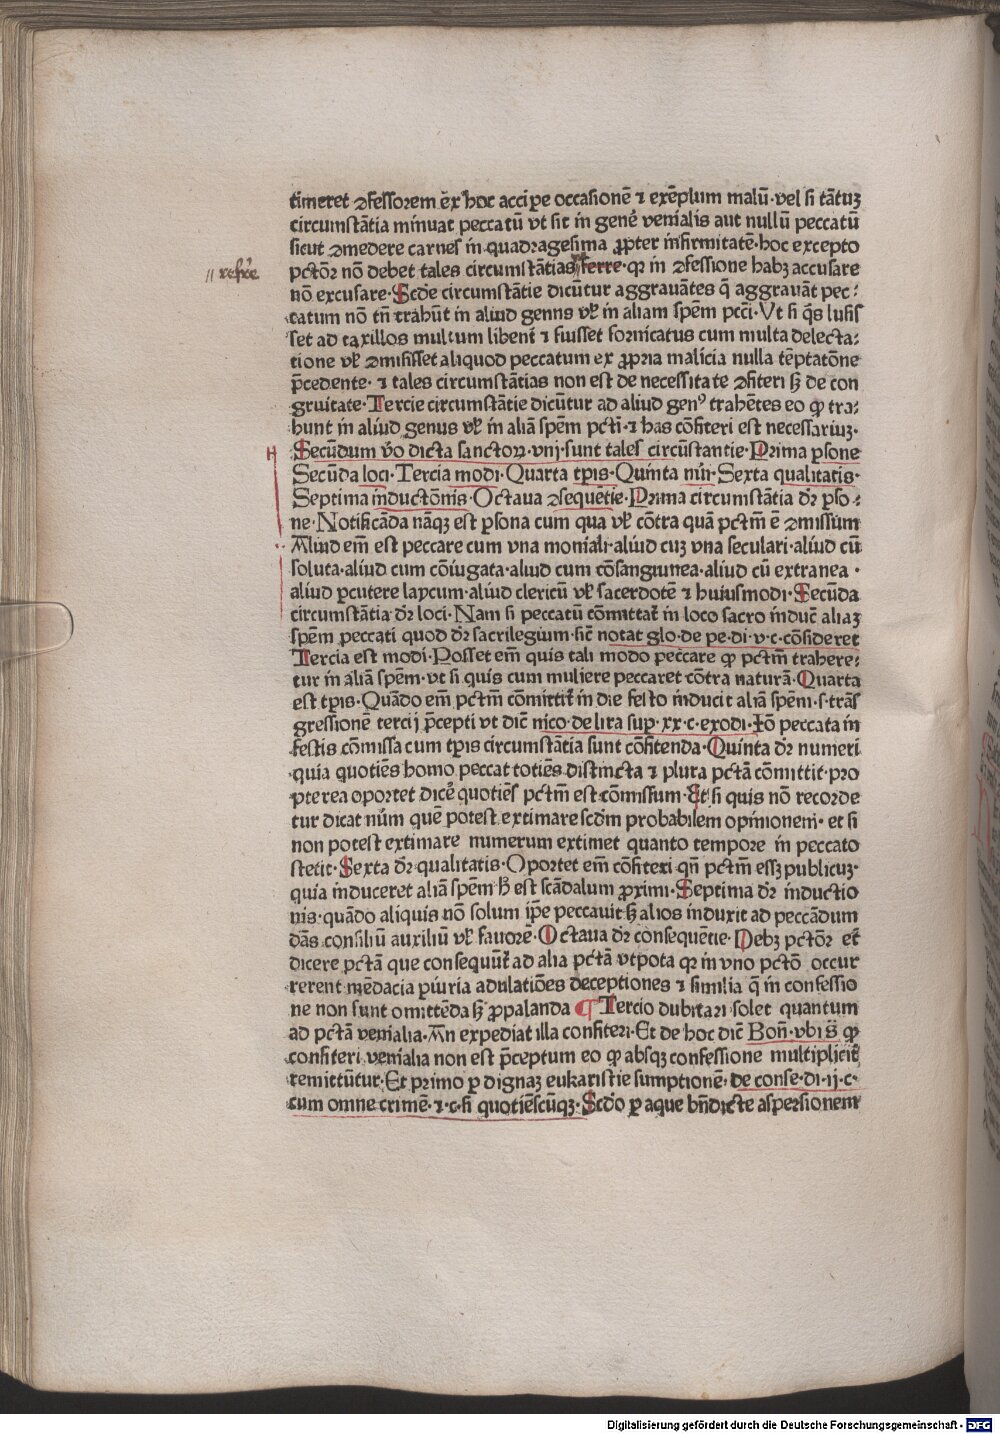 timeret ꝯfessorem ēx hoc accipe occasionē ⁊ exēplum malū·vel si tātuꝫ
circumstātia minuat peccatū vt sit in genē venialis aut nullū peccatū
sicut ꝯmedere carnes in quadragesima ꝓpter infirmitatē·hoc excepto
// refer̄e
pctōꝝ nō debet tales circumstātias ferre·qꝛ in ꝯfessione habꝫ accusare
nō excusare·Scde circumstātie dicūtur aggrauātes q̄ aggrauāt pec:
catum nō tn̄ trahūt in aliud genus vl̓ in aliam spēm pcci·Vt si q̄s lusis
set ad taxillos multum libent̄ ⁊ fuisset fornicatus cum multa delecta:
tione vl̓ ꝯmisisset aliquod peccatum ex ꝓpria malicia nulla tēptatōne
p̄cedente·⁊ tales circumstātias non est de necessitate ꝯfiteri sꝫ de con
gruitate·Tercie circumstātie dicūtur ad aliud genꝰ trahētes eo ꝙ tra:
hunt in aliud genus vl̓ in aliā spēm pcti·⁊ has cōfiteri est necessariuꝫ·
Secūdum v̄o dicta sanctoꝝ·vnj·sunt tales circūstantie·Prima ꝑsone
Secūda loci·Tercia modi·Quarta tp̄is·Quinta nūi·Sexta qualitatis·
Septima inductōnis·Octaua ꝯsequētie·Prima circumstātia dr̄ ꝑso:
ne·Notificāda nāqꝫ est ꝑsona cum qua vl̓ cōtra quā pctm̄ ē ꝯmissum
Aliud em̄ est peccare cum vna moniali·aliud cuꝫ vna seculari·aliud cū
soluta·aliud cum cōiugata·aliud cum cōsanguinea·aliud cū extranea·
aliud ꝑcutere laycum·aliud clericū vl̓ sacerdotē ⁊ huiusmodi·Secūda
circumstātia dr̄ loci·Nam si peccatū cōmittat̄ in loco sacro inducˉ aliaꝫ
spēm peccati quod dr̄ sacrilegium·sic̄ notat glo·de pe·di·v·c·cōsideret
Tercia est modi·Posset em̄ quis tali modo peccare ꝙ pctm̄ trahere:
tur in aliā spēm·vt si quis cum muliere peccaret cōtra naturā·Quarta
est tp̄is·Quādo em̄ pctm̄ cōmittit̄ in die festo inducit aliā spēm·s·trās
gressionē tercij p̄cepti vt dic̄ nico·de lira sup·xx·c·exodi·Iō peccata in
festis cōmissa cum tp̄is circumstātia sunt cōfitenda·Quinta dr̄ numeri
quia quotiēs homo peccat totiēs distincta ⁊ plura pctā cōmittit·pro
pterea oportet dicē quotiēs pctm̄ est cōmissum·Et si quis nō recorde
tur dicat nūm quē potest extimare scdm̄ probabilem opinionem·et si
non potest extimare numerum extimet quanto tempore in peccato
stetit·Sexta dr̄ qualitatis·Oportet em̄ cōfiteri qn̄ pctm̄ essꝫ publicuꝫ·
quia induceret aliā spēm h̄ est scādalum ꝓximi·Septima dr̄ inductio
nis·quādo aliquis nō solum ip̄e peccauit sꝫ alios induxit ad peccādum
dās consiliū auxiliū vl̓ fauorē·Octaua dr̄ consequētie·Debꝫ pctōꝝ et̄
dicere pctā que consequūt̄ ad alia pctā vtpota qꝛ in vno pctō occur
rerent mēdacia ꝑiuria adulatiōes deceptiones ⁊ similia q̄ in confessio
ne non sunt omittēda sꝫ ꝓpalanda ¶ Tercio dubitari solet quantum
ad pctā venialia·An expediat illa confiteri·Et de hoc dic̄ Bon̄·vbi s̄ ꝙ
confiteri venialia non est p̄ceptum eo ꝙ absqꝫ confessione multiplicit̄
remittūtur·Et primo ꝑ dignaꝫ eukaristie sumptionē·de conse·di·ij·c·
cum omne crimē·⁊·c·si quotiēscūqꝫ·Scdo ꝑ aque bn̄dicte aspersionem
Digitalisierung gefördert durch die Deutsche Forschungsgemeinschaft - DFG